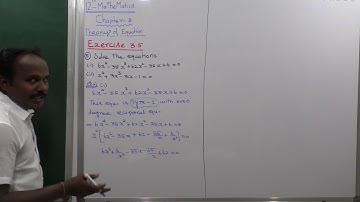 12-Mathematics
Chapter 3
Theory of Equation
Exercise 3.5
⑤ Solve the equations
(i) 6x⁴-35x³+62x²-35x+6=0
(ii) x⁴+3x³-3x-1=0
(i)
6x⁴-35x³+62x²-35x+6=0
This equ is Type-I with even
degree reciprocal equ-
⇒ 6x⁴-35x³+62x²-35x+6=0
x²[6x²-35x+62-35/x+6/x²]=0
6x²+6/x²-35x-35/x+62=0